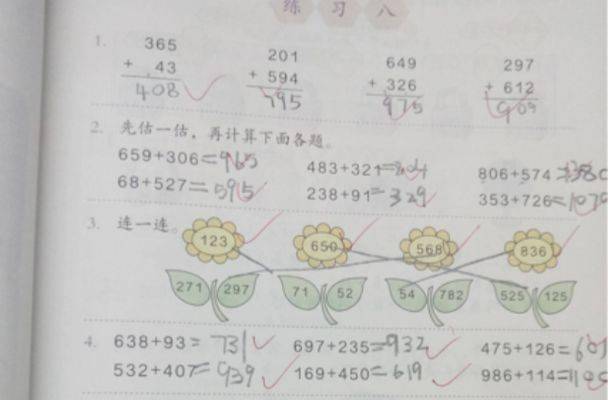 练 习 八
1. 365 201 649 297
+ 43 + 594 + 326 + 612
408 795 975 909
2. 先估一估，再计算下面各题。
659+306=965 483+321=804 806+574=1380
68+527=595 238+91=329 353+726=1079
3. 连一连。
123 650 568 836
271 297 71 52 54 782 525 125
4. 638+93=731 697+235=932 475+126=601
532+407=939 169+450=619 986+114=1100